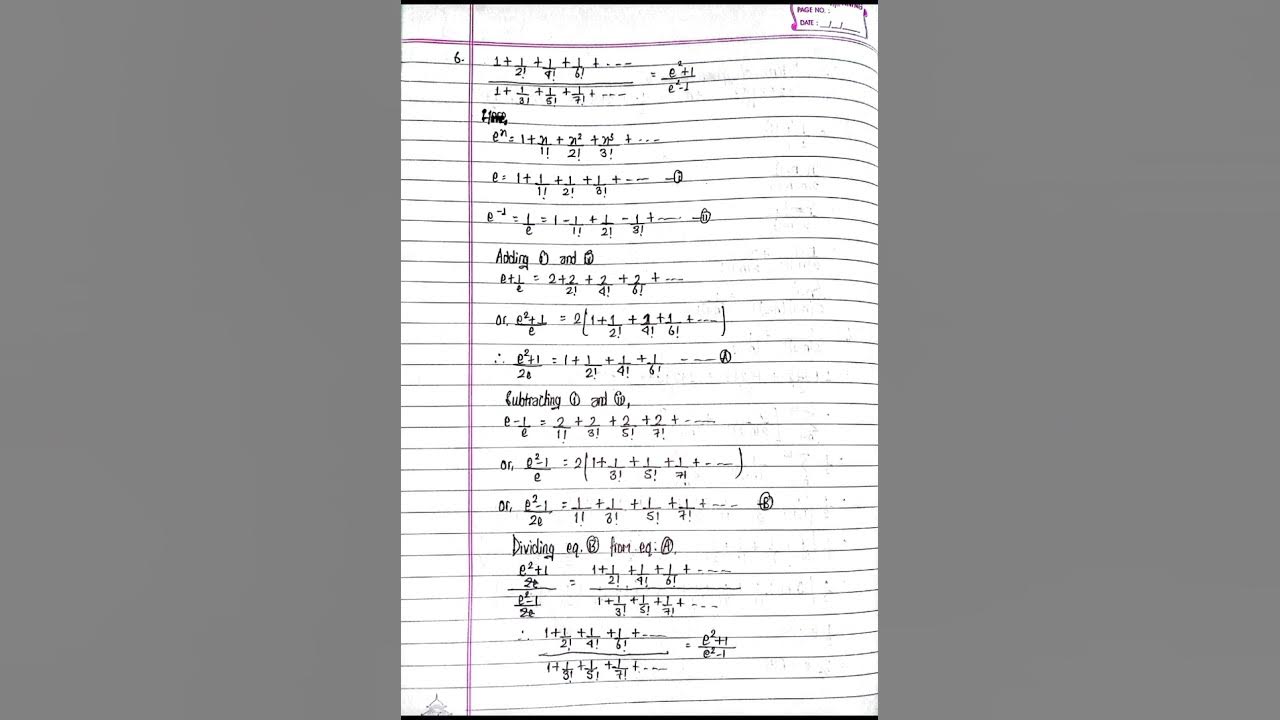 PAGE NO. :
DATE : __/__/__
6. (1 + 1/2! + 1/4! + 1/6! + ---) / (1 + 1/3! + 1/5! + 1/7! + ---) = (e²+1)/(e²-1)
e^x = 1 + x/1! + x²/2! + x³/3! + ---
e = 1 + 1/1! + 1/2! + 1/3! + --- - (i)
e^-1 = 1/e = 1 - 1/1! + 1/2! - 1/3! + --- - (ii)
Adding (i) and (ii)
e + 1/e = 2 + 2/2! + 2/4! + 2/6! + ---
or, (e²+1)/e = 2(1 + 1/2! + 1/4! + 1/6! + ---)
∴ (e²+1)/2e = 1 + 1/2! + 1/4! + 1/6! --- (A)
Subtracting (i) and (ii),
e - 1/e = 2/1! + 2/3! + 2/5! + 2/7! + ---
or, (e²-1)/e = 2(1 + 1/3! + 1/5! + 1/7! + ---)
or, (e²-1)/2e = 1/1! + 1/3! + 1/5! + 1/7! + --- (B)
Dividing eq. (B) from eq. (A),
((e²+1)/2e) / ((e²-1)/2e) = (1 + 1/2! + 1/4! + 1/6! + ---) / (1 + 1/3! + 1/5! + 1/7! + ---)
∴ (1 + 1/2! + 1/4! + 1/6! + ---) / (1 + 1/3! + 1/5! + 1/7! + ---) = (e²+1)/(e²-1)